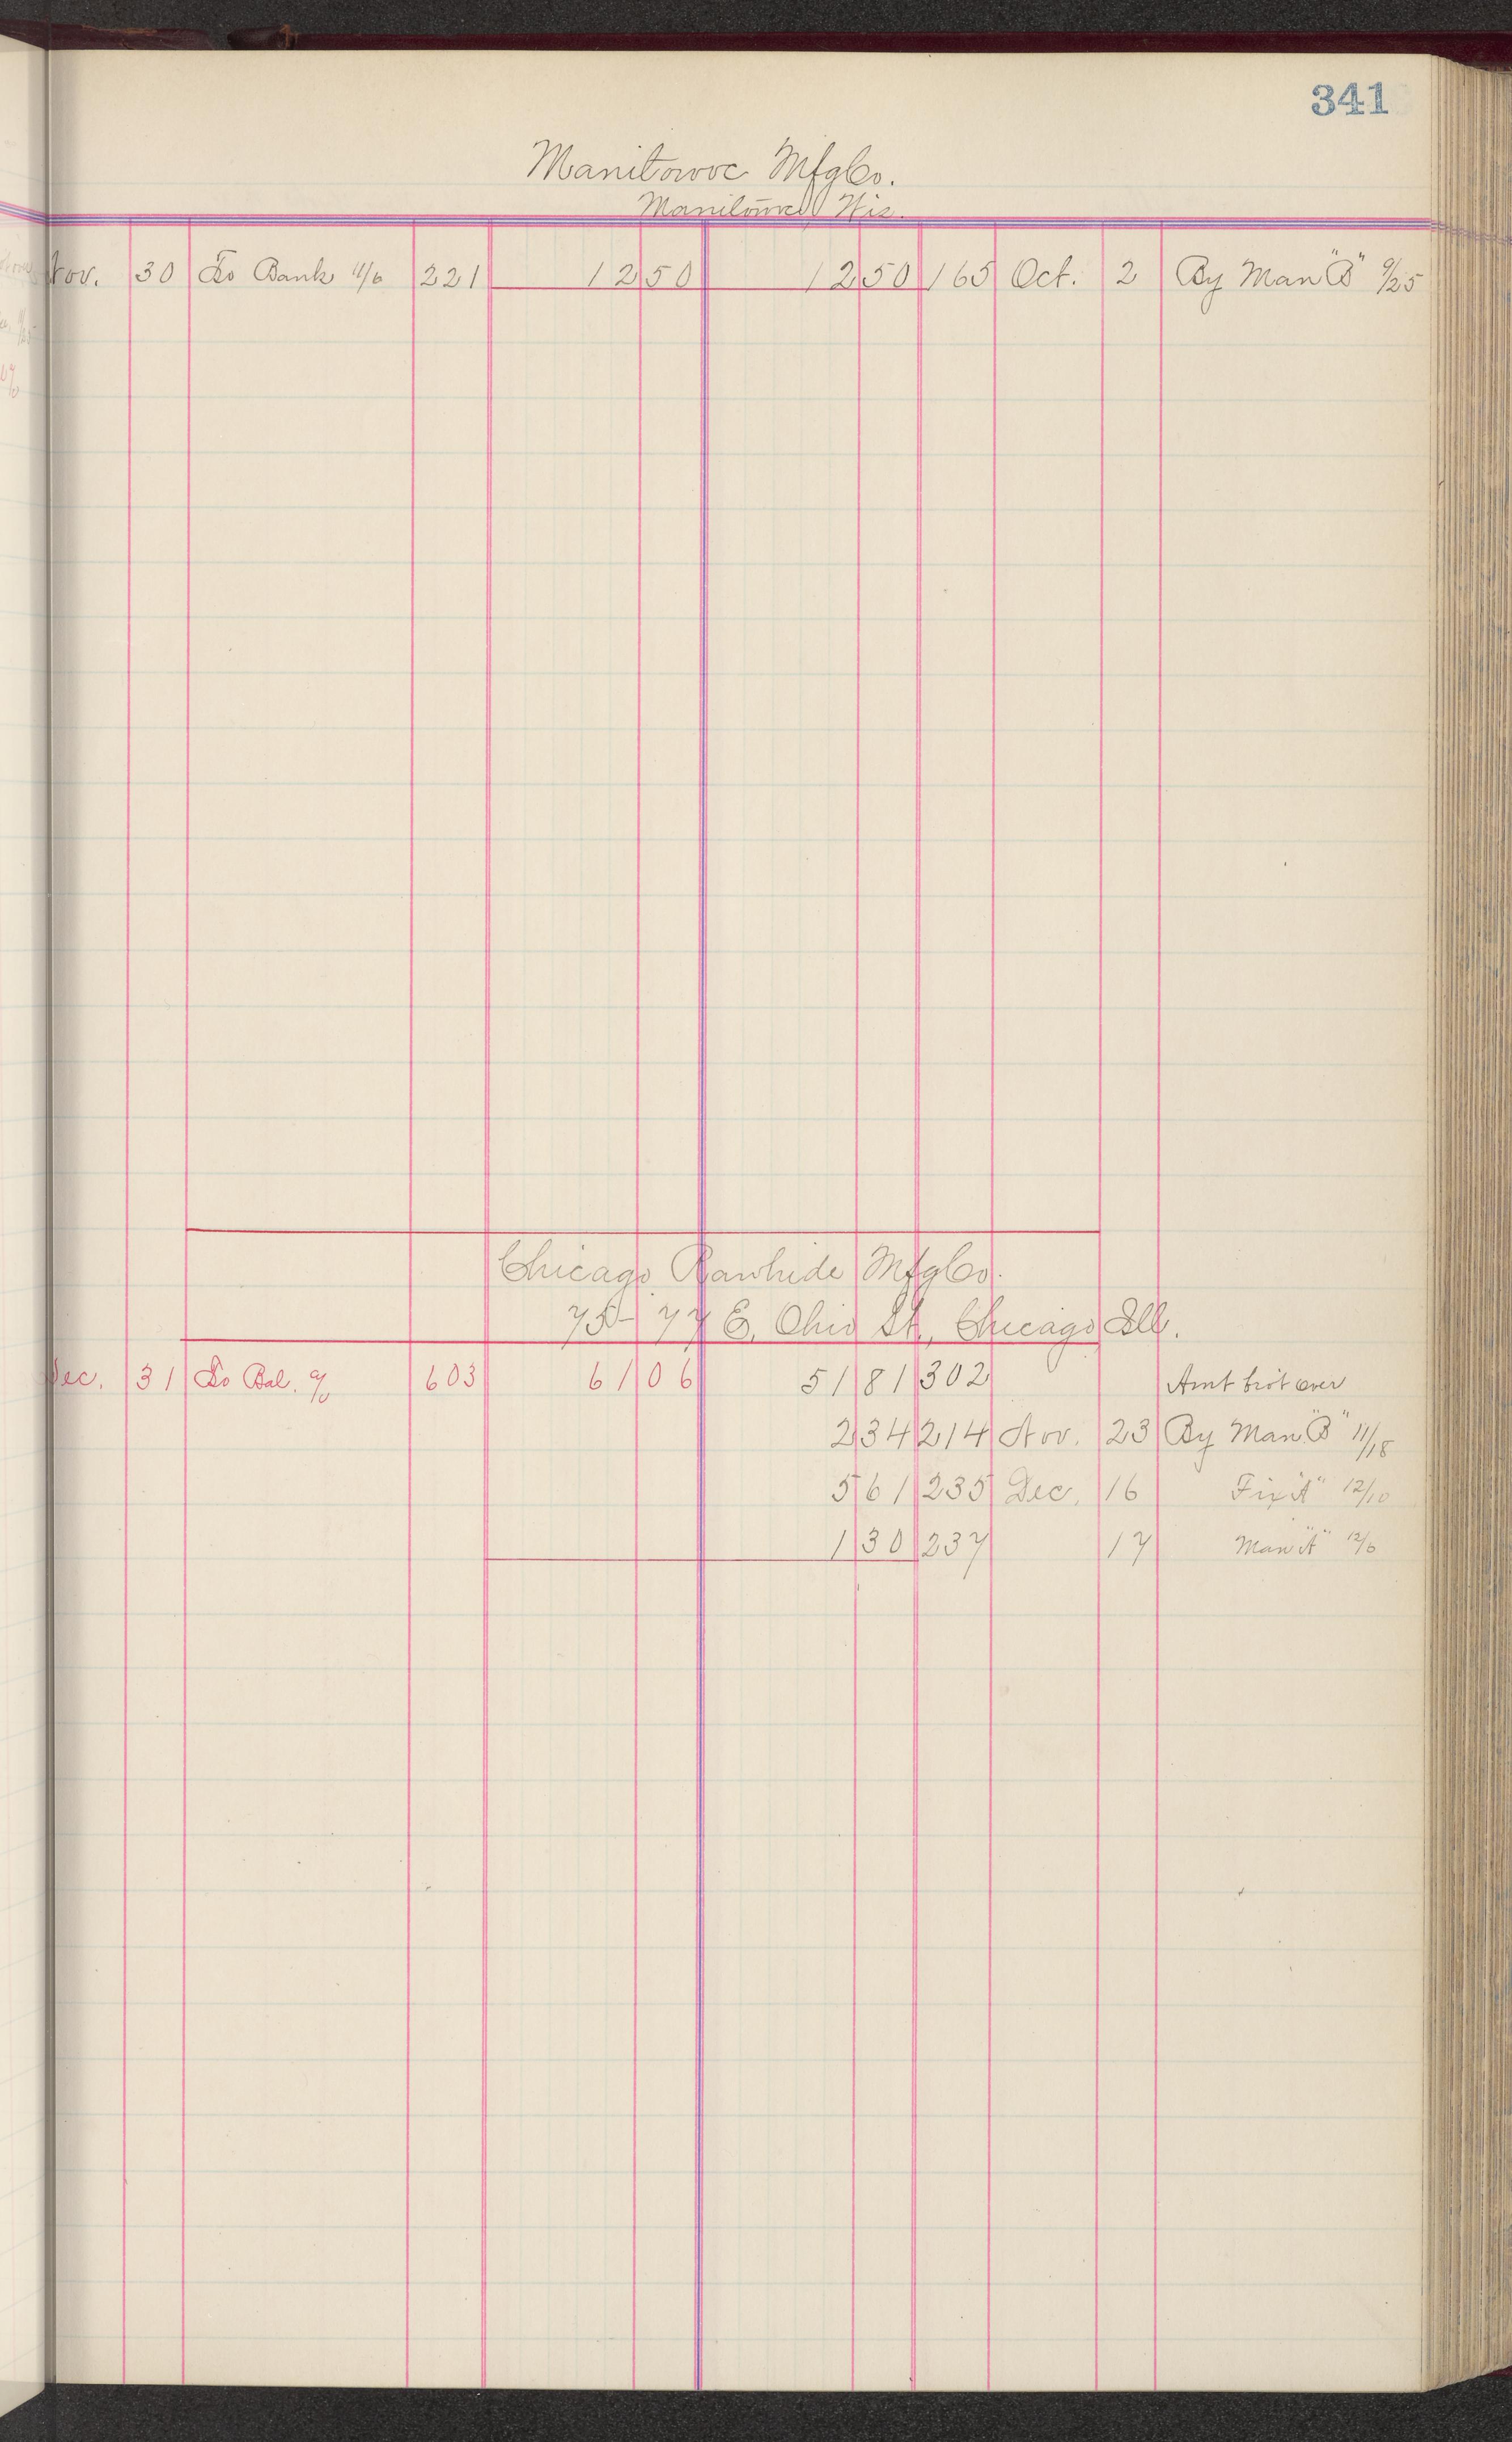 341
Manitowoc Mfg Co.
Manitowoc Wis.
Nov. 30 To Bank 11/6 221 12 50 12 50 165 Oct. 2 By Man "B" 9/25
Chicago Rawhide Mfg Co.
75-77 E. Ohio St., Chicago Ill.
Dec. 31 To Bal. 603 61 06 51 81 302 Amt brot over
2 34 214 Nov. 23 By Man "B" 11/18
5 61 235 Dec. 16 Fix "A" 12/10
1 30 237 17 Man "A" 12/6